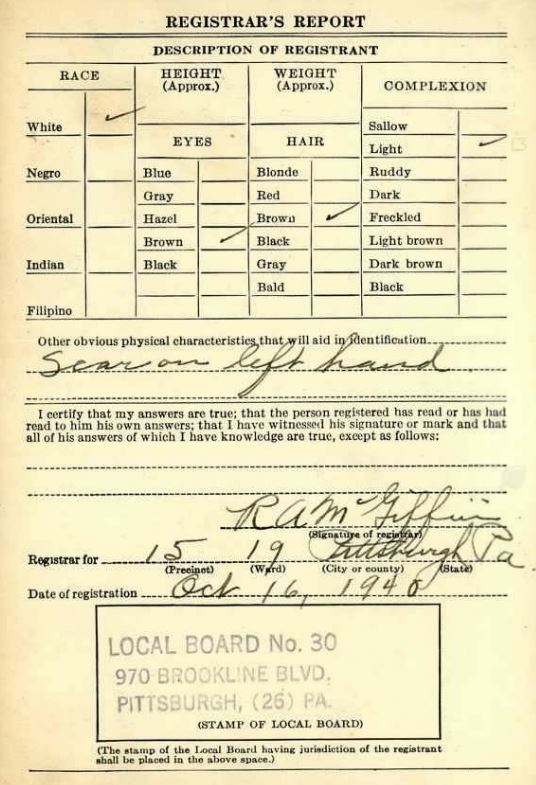 REGISTRAR'S REPORT
DESCRIPTION OF REGISTRANT
RACE
White ✓
Negro
Oriental
Indian
Filipino
HEIGHT
(Approx.)
WEIGHT
(Approx.)
EYES
Blue
Gray
Hazel
Brown ✓
Black
HAIR
Blonde
Red
Brown ✓
Black
Gray
Bald
COMPLEXION
Sallow
Light ✓
Ruddy
Dark
Freckled
Light brown
Dark brown
Black
Other obvious physical characteristics that will aid in identification
Scar on left hand
I certify that my answers are true; that the person registered has read or has had
read to him his own answers; that I have witnessed his signature or mark and that
all of his answers of which I have knowledge are true, except as follows:
R A McGiffin
(Signature of registrar)
Registrar for 15 19 Pittsburgh Pa
(Precinct) (Ward) (City or county) (State)
Date of registration Oct 16, 1940
LOCAL BOARD No. 30
970 BROOKLINE BLVD.
PITTSBURGH, (26) PA.
(STAMP OF LOCAL BOARD)
(The stamp of the Local Board having jurisdiction of the registrant
shall be placed in the above space.)